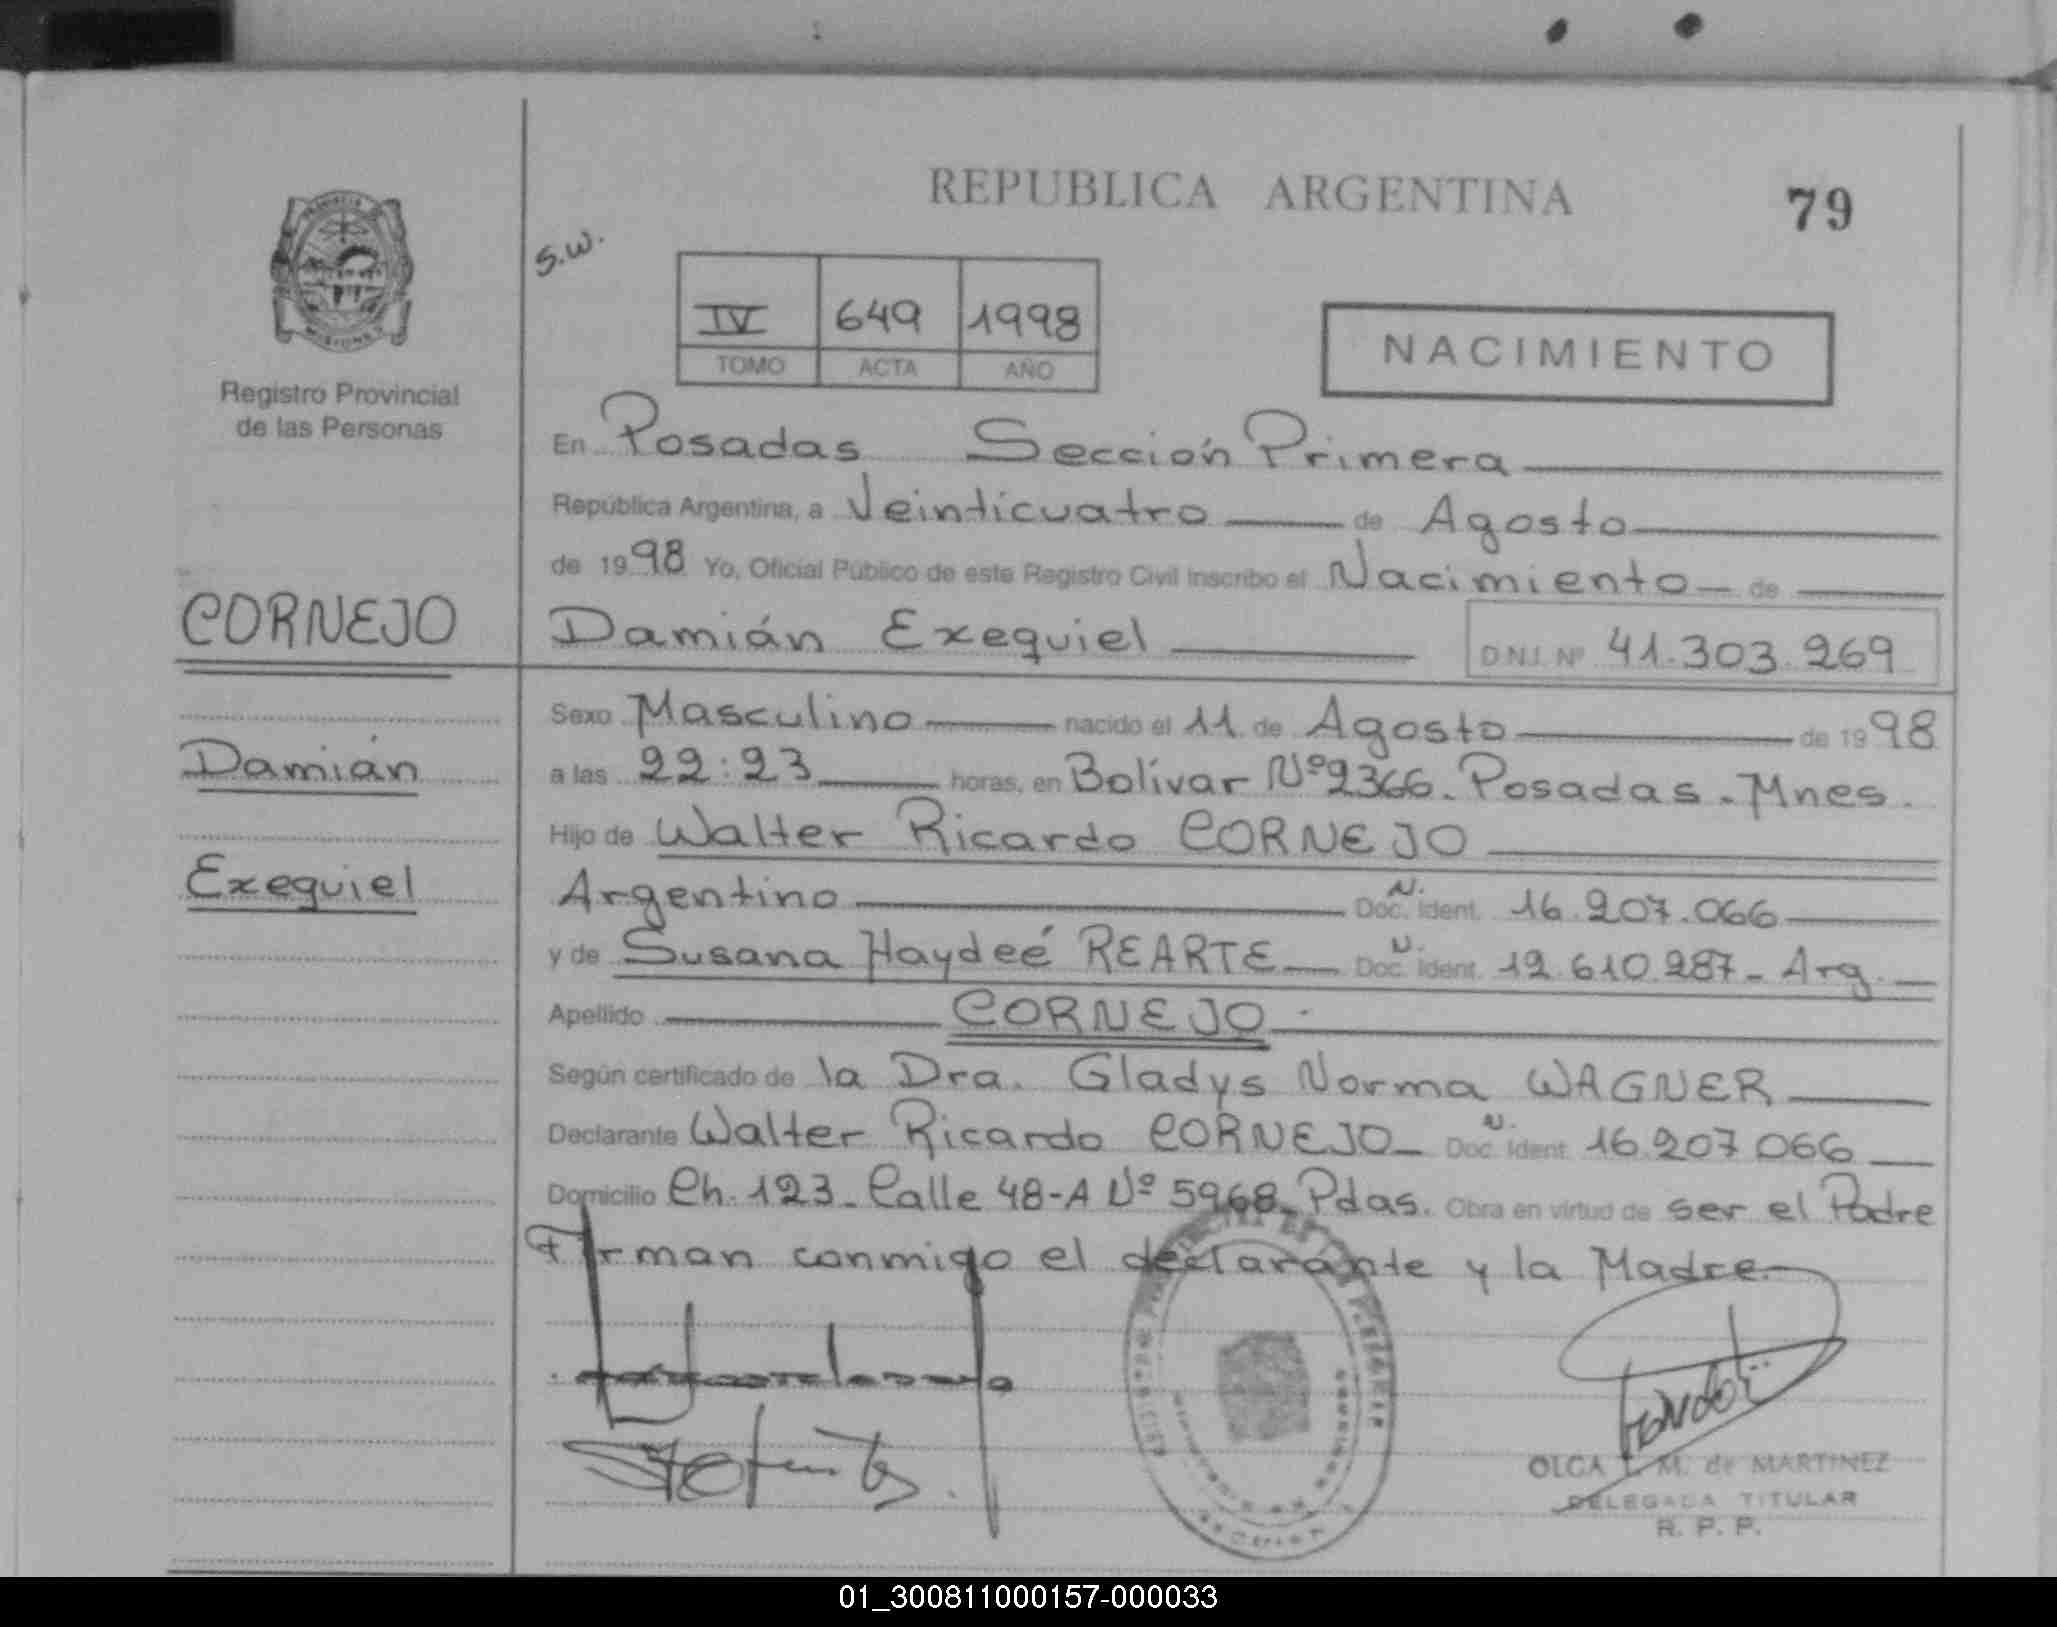 REPUBLICA ARGENTINA
79
S.W.
IV 649 1998
TOMO ACTA AÑO
NACIMIENTO
PROVINCIA DE
MISIONES
Registro Provincial
de las Personas
En Posadas Sección Primera
República Argentina, a Veinticuatro de Agosto
de 1998 Yo, Oficial Público de este Registro Civil inscribo el Nacimiento de
CORNEJO
Damián Exequiel D.N.I. Nº 41.303.269
Sexo Masculino nacido el 11 de Agosto de 1998
Damián
a las 22:23 horas, en Bolívar Nº 2366. Posadas. Mnes.
Hijo de Walter Ricardo CORNEJO
Exequiel
Argentino Doc. N. Ident. 16.207.066
y de Susana Haydeé REARTE Doc. N. Ident. 12.610.287 - Arg.
Apellido CORNEJO
Según certificado de la Dra. Gladys Norma WAGNER
Declarante Walter Ricardo CORNEJO Doc. N. Ident. 16.207.066
Domicilio Ch. 123 - Calle 48-A Nº 5968 - Pdas. Obra en virtud de ser el Padre
Firman conmigo el declarante y la Madre
OLGA M. de MARTINEZ
DELEGADA TITULAR
R. P. P.
01_300811000157-000033